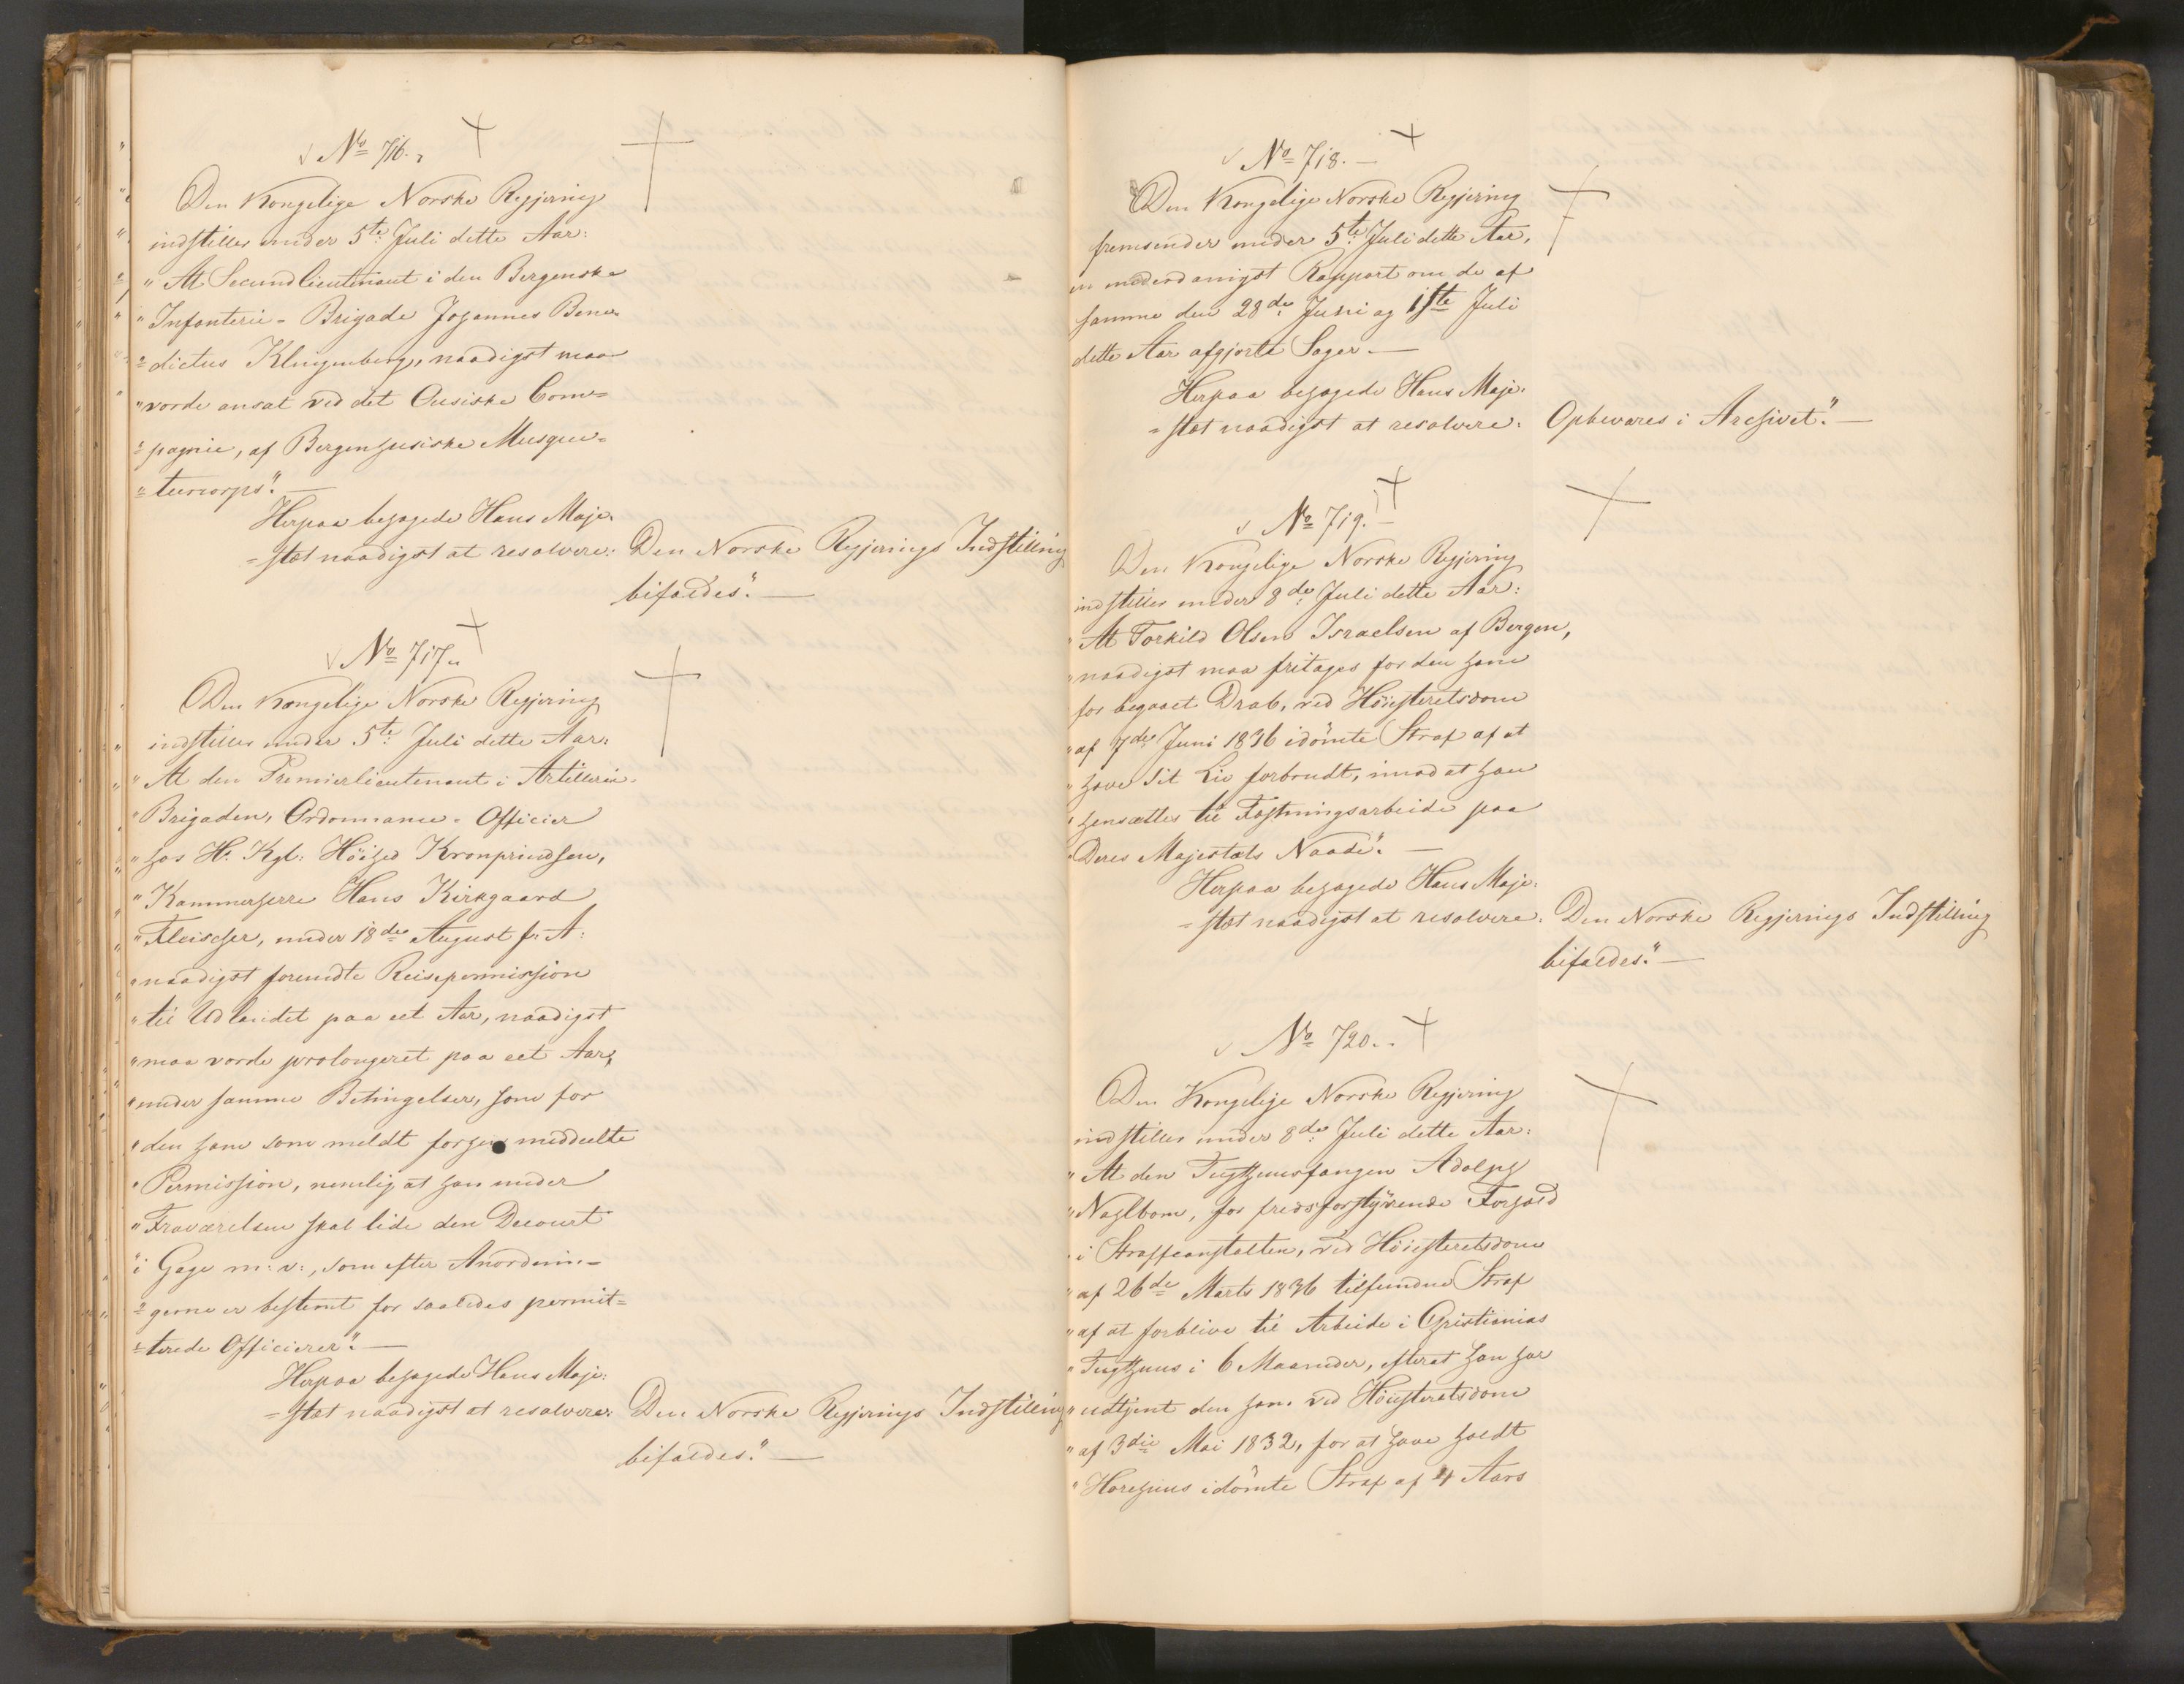 No 716.
Den Kongelige Norske Regjering
indstiller under 5te Juli dette Aar:
"At Secundlieutenant i den Bergenske
"Infanterie-Brigade Johannes Bene-
"dictus Klingenberg, naadigst maa
"vorde ansat ved det Ousiske Com=
"pagnie, af Bergenhusiske Musque=
"teercorps". —
Herpaa behagede Hans Maje-
=stæt naadigst at resolvere: Den Norske Regjerings Indstilling
bifaldes." —
No 717.
Den Kongelige Norske Regjering
indstiller under 5te Juli dette Aar:
"At den Premierlieutenant i Artillerie-
"Brigaden, Ordonnance-Officier
"hos H. Kgl. Höihed Kronprindsen,
"Kammerherre Hans Kirkgaard
"Fleischer, under 18de August f. A.
"naadigst forundte Reisepermission
"til Udlandet paa eet Aar, naadigst
"maa vorde prolongeret paa eet Aar,
"under samme Betingelser, som for
"den ham som meldt forhen meddeelte
"Permission, nemlig at han under
"Fraværelsen skal lide den Decourt
"i Gage m: v:, som efter Anordnin=
"gerne er bestemt for saaledes permit=
"terede Officierer". —
Herpaa behagede Hans Maje-
=stæt naadigst at resolvere: Den Norske Regjerings Indstilling
bifaldes." —
No 718. —
Den Kongelige Norske Regjering
fremsender under 5te Juli dette Aar,
en underdanigst Rapport om de af
samme den 28de Juni og 1ste Juli
dette Aar afgjorte Sager. —
Herpaa behagede Hans Maje-
=stæt naadigst at resolvere: Opbevares i Archivet." —
No 719. —
Den Kongelige Norske Regjering
indstiller under 8de Juli dette Aar:
"At Torkild Olsen Israelsen af Bergen,
"naadigst maa fritages for den ham
for begaaet Drab, ved Höiesteretsdom
"af 7de Juni 1836 idömte Straf af at
"have sit Liv forbrudt, imod at han
"hensættes til Fæstningsarbeide paa
"Deres Majestæts Naade". —
Herpaa behagede Hans Maje-
=stæt naadigst at resolvere: Den Norske Regjerings Indstilling
bifaldes." —
No 720.
Den Kongelige Norske Regjering
indstiller under 8de Juli dette Aar:
"At den Tugthuusfangen Adolph
"Naglbom, for fredsforstyrrende Forhold
"i Straffeanstalten, ved Höiesteretsdom
"af 26de Marts 1836 tilfundne Straf
"af at forblive til Arbeide i Christianias
"Tugthuus i 6 Maaneder, efterat han har
"udtjent den ham ved Höiesteretsdom
"af 3die Mai 1832, for at have holdt
"Horehuus idömte Straf af 4 Aars